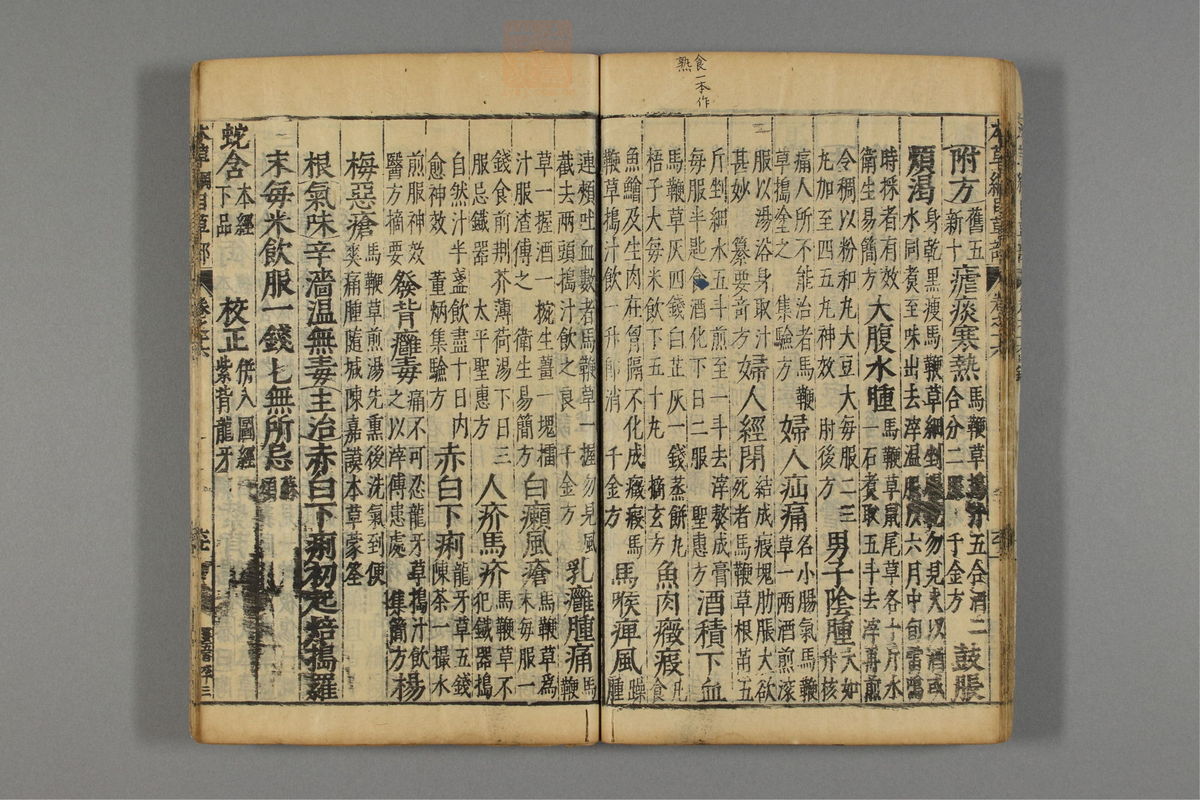 食一本作
熟
附方舊五新十瘧痰寒熱馬鞭草擣汁五合酒二合分二服 千金方鼓脹
煩渴身乾黑瘦馬鞭草細剉曝乾勿見火以酒或水同煮至味出去滓温服以六月中旬雷鳴
時採者有效衛生易簡方大腹水腫馬鞭草鼠尾草各十斤水一石煮取五斗去滓再煎
令稠以粉和丸大豆大每服二三丸加至四五丸神效 肘後方男子陰腫大如升核
痛人所不能治者馬鞭草搗塗之 集驗方婦人疝痛名小腸氣馬鞭草一兩酒煎滚
服以湯浴身取汁甚妙 纂要竒方婦人經閉結成瘕塊肋脹大欲死者馬鞭草根苗五
斤剉細水五斗煎至一斗去滓熬成膏每服半匙食酒化下日二服 聖惠方酒積下血
馬鞭草灰四錢白芷灰一錢蒸餅丸梧子大每米飲下五十丸 摘玄方魚肉癥瘕凡食
魚鱠及生肉在胷膈不化成癥瘕馬鞭草搗汁飲一升卽消 千金方馬喉痺風躁腫
連頰吐血數者馬鞭草一握勿見風截去兩頭搗汁飲之良 千金方乳癰腫痛馬鞭
草一握酒一椀生薑一塊擂汁服渣傅之 衛生易簡方白癩風瘡馬鞭草為末每服一
錢食前荆芥薄荷湯下日三服忌鐵器 太平聖惠方人疥馬疥馬鞭草不犯鐵器搗
自然汁半盞飲盡十日内愈神效 董炳集驗方赤白下痢龍牙草五錢陳茶一撮水
煎服神效醫方摘要發背癰毒痛不可忍龍牙草搗汁飲之以滓傅患處 集簡方楊
梅惡瘡馬鞭草煎湯先熏後洗氣到便爽痛腫隨減陳嘉謨本草蒙筌
根氣味辛濇温無毒主治赤白下痢初起焙搗羅
末每米飲服一錢匕無所忌蘇頌
蛇含本經下品 校正併入圖經紫背龍牙
本草綱目草部 卷之十六